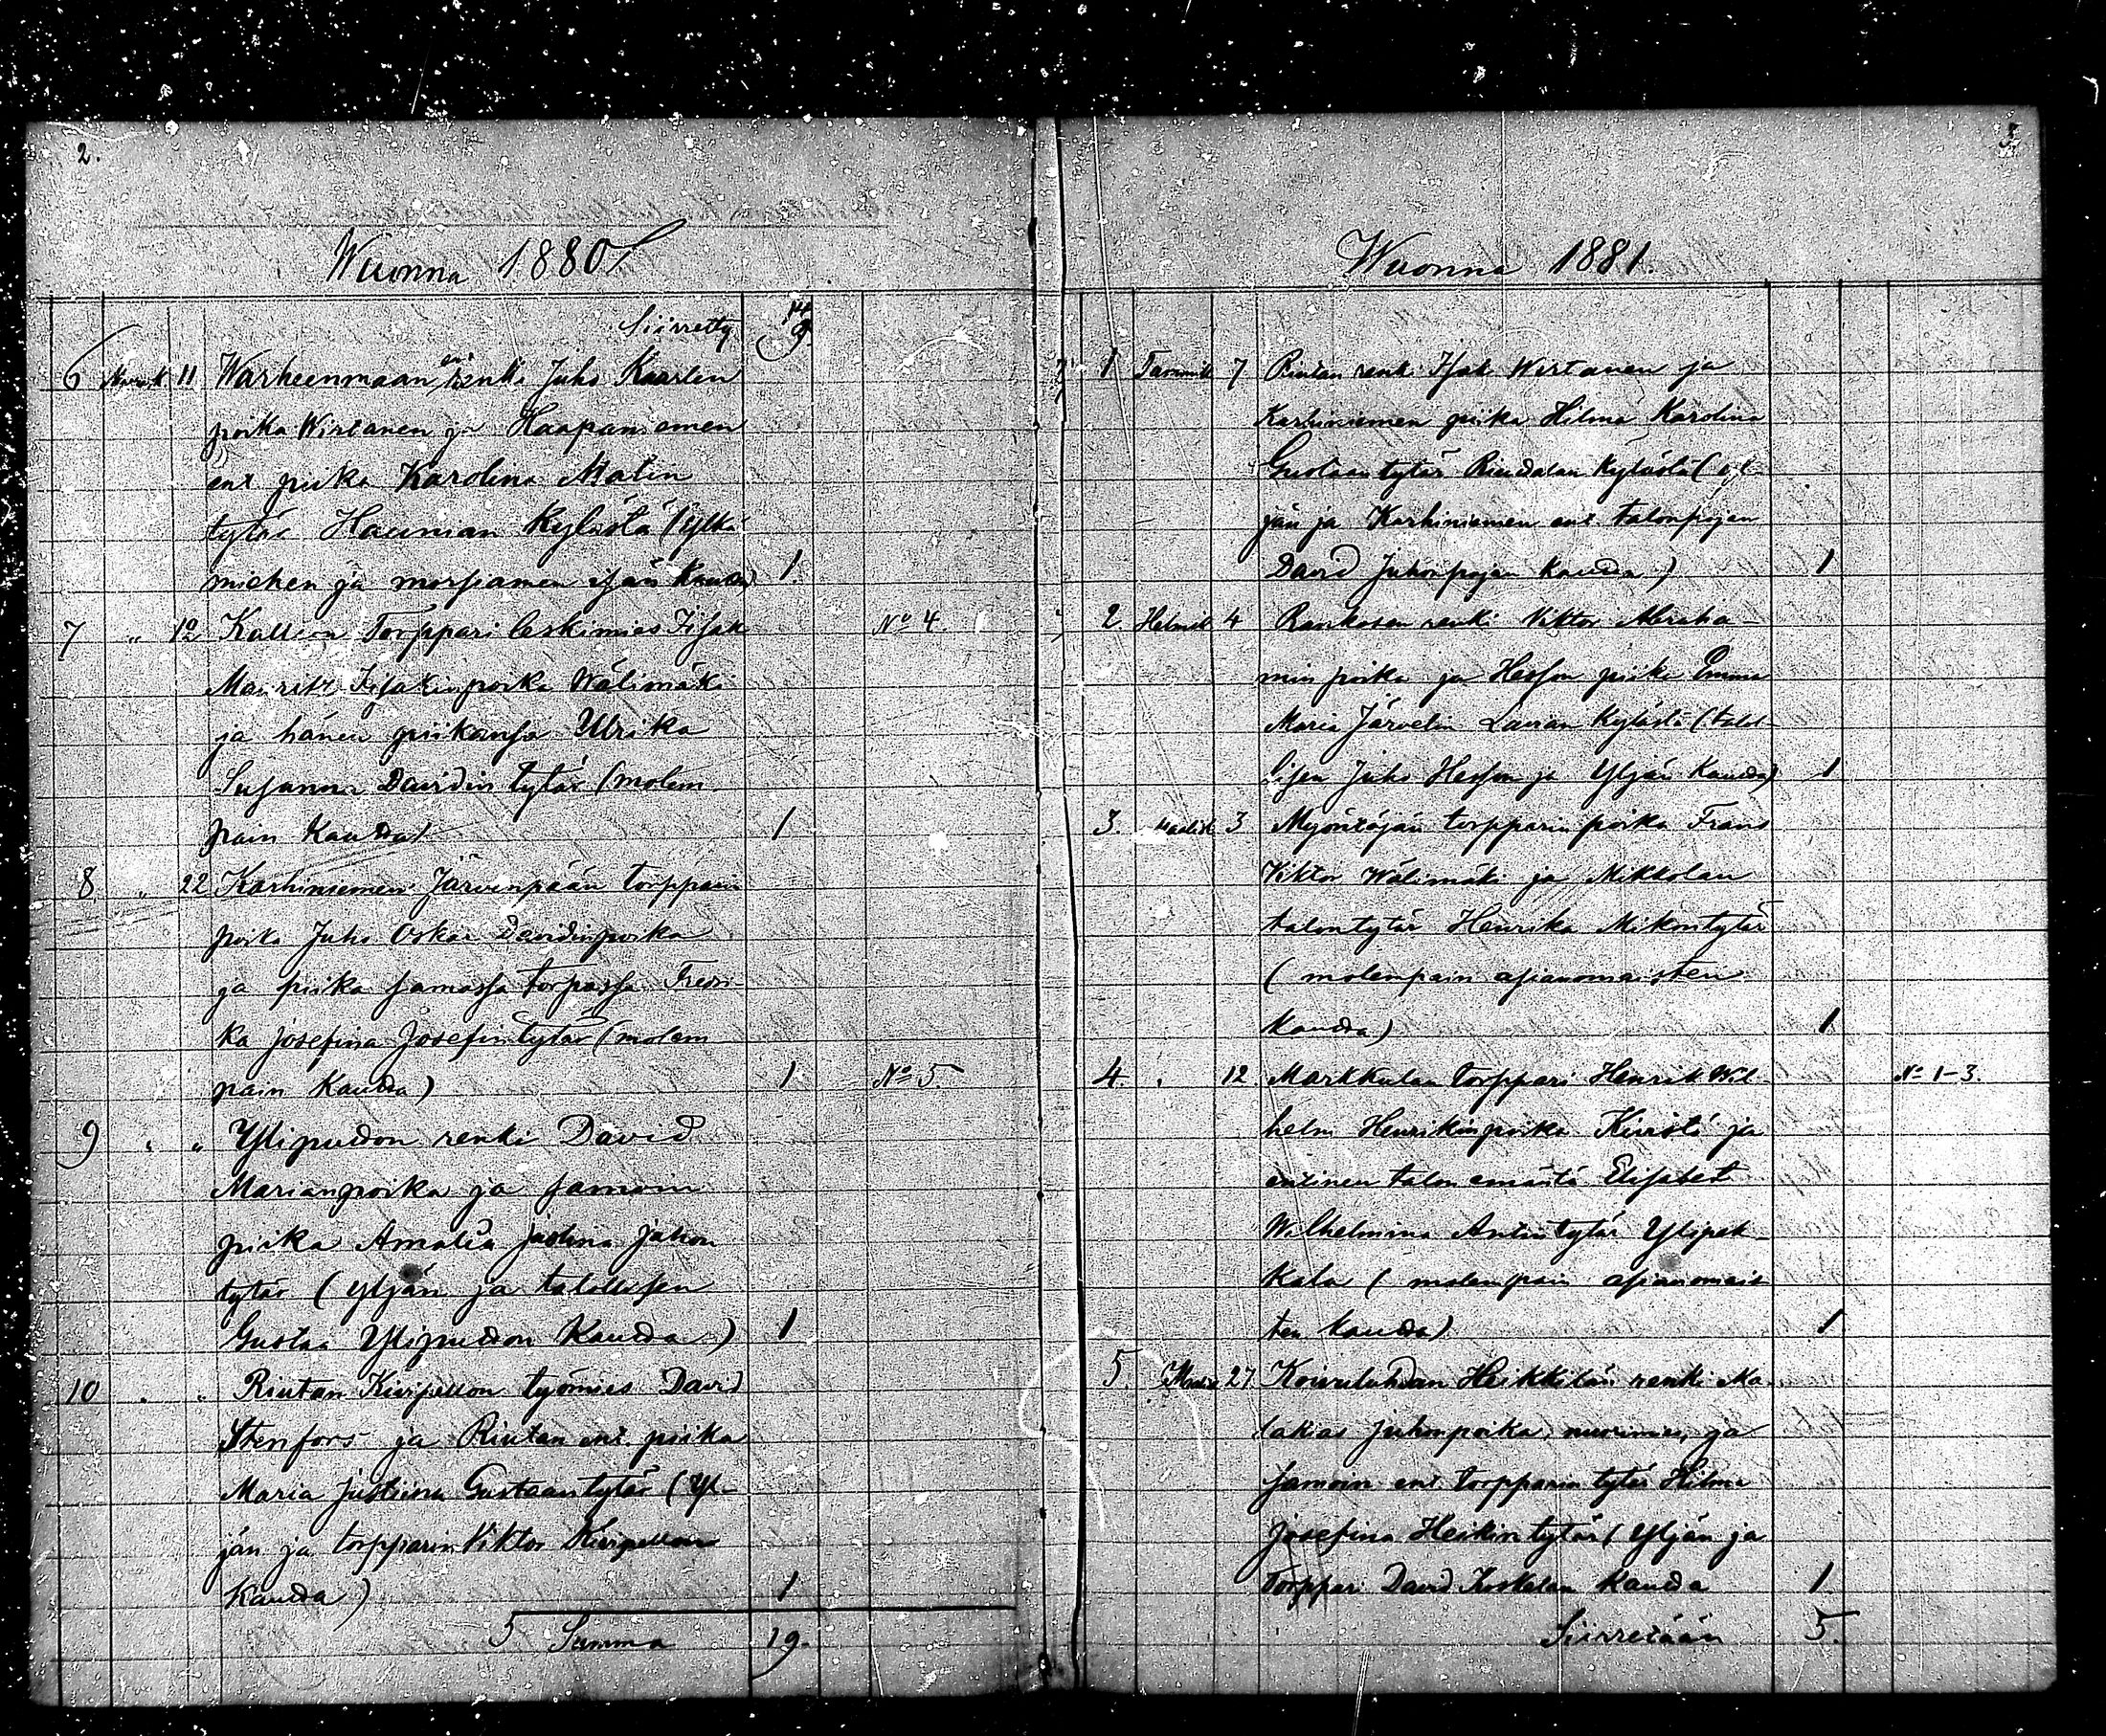 2.
Wuonna 1880
Siirretty 9
6 11 Warheenmaan ent renki Juho Kaarlen
poika Wirtanen ja Haapaniemen
ent piika Karolina Matin
tytär Hauman Kylästä (ylkä
miehen ja morsiamen isän kautta) 1.
7 " 12 Kallion Torppari leskimies Iisak No 4.
Mauritz Iisakinpoika Wälimäki
ja hänen piikansa Ulrika
Susanna Davidin tytär (molem
pain kautta) 1
8. " 22 Karhiniemen Järvenpään torpparin
poika Juho Oskar Davidinpoika
ja piika samassa torpassa Fredri
ka Josefina Josefintytär (molem
pain kautta) 1 No 5
9 " " Ylipudon renki David
Marianpoika ja samoin
piika Amalia Justina Juhon
tytär (Yljän ja talollisen
Gustaa Ylipudon kautta) 1
10 " " Riutan Kivipellon työmies David
Stenfors ja Riutan ent. piika
Maria Justiina Gustaantytär (Yl-
jän ja torpparin Viktor Kivipellon
kautta) 1
5 Summa 19.
3
Wuonna 1881.
1 Tammik 7 Riutan renki Isak Wirtanen ja
Karhiniemen piika Hilma Karolina
Gustaantytär Kylästä (yl-
jän ja Karhiniemen ent. talonpojan
David Juhonpojan kautta) 1
2 Helmik 4 Rankosen renki Viktor Abraha-
min poika ja Hesson piika Emma
Maria Järvelin Lauran Kylästä (talol-
lisen Juho Hesson ja Yljän kautta) 1
3. Maalisk 3 Myöntäjän torpparin poika Frans
Viktor Wälimäki ja Mikkolan
talontytär Henrika Mikontytär
(molempain asianomaisten
kautta) 1
4. " 12. Markkulan torppari Henrik Wil- No 1-3.
helm Henrikinpoika Kiuristö ja
entinen talon emäntä Elisabet
Wilhelmina Antintytär Ylipek-
kala (molempain asianomais
ten kautta) 1
5. 27. Koivuluhdan Heikkilän renki Ma-
lakias Juhonpoika, nuorimies, ja
samoin ent. torpparin tytär Hilma
Josefina Heikintytär (Yljän ja
torppari David Koskelan kautta 1
Siirretään 5.